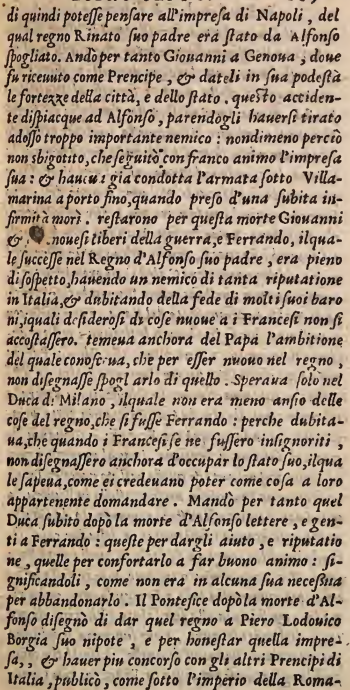 di quindi potesse pensare all'impresa di Napoli, del
qual regno Rinato suo padre era stato da Alfonso
spogliato. Andò per tanto Giouanni a Genoua, doue
fu riceuuto come Prencipe, & dateli in sua podestà
le fortezze della città, e dello stato. questo acciden-
te dispiacque ad Alfonso, parendogli hauersi tirato
adosso troppo importante nemico: nondimeno perciò
non sbigotito, che seguitò con franco animo l'impresa
sua: & haueua già condotta l'armata sotto Villa-
marina a porto fino, quando preso d'una subita in-
firmità morì. restarono per questa morte Giouanni
& nouesi liberi della guerra, e Ferrando, ilqua-
le successe nel Regno d'Alfonso suo padre, era pieno
di sospetto, hauendo un nemico di tanta riputatione
in Italia, & dubitando della fede di molti suoi baro
ni, iquali desiderosi di cose nuoue a i Francesi non si
accostassero. temeua anchora del Papa l'ambitione
del quale conosceua, che per esser nuouo nel regno,
non disegnasse spogliarlo di quello. Speraua solo nel
Duca di Milano, ilquale non era meno ansio delle
cose del regno, che si fusse Ferrando: perche dubita-
ua, che quando i Francesi se ne fussero insignoriti,
non disegnassero anchora d'occupar lo stato suo, ilqua
le sapeua, come ei credeuano poter come cosa a loro
appartenente domandare. Mandò per tanto quel
Duca subito dopò la morte d'Alfonso lettere, e gen-
ti a Ferrando: queste per dargli aiuto, e riputatio
ne, quelle per confortarlo a far buono animo: si-
gnificandoli, come non era in alcuna sua necessità
per abbandonarlo. Il Pontefice dopò la morte d'Al-
fonso disegnò di dar quel regno a Piero Lodouico
Borgia suo nipote, e per honestar quella impre-
sa,, & hauer piu concorso con gli altri Prencipi di
Italia, publicò, come sotto l'imperio della Roma-